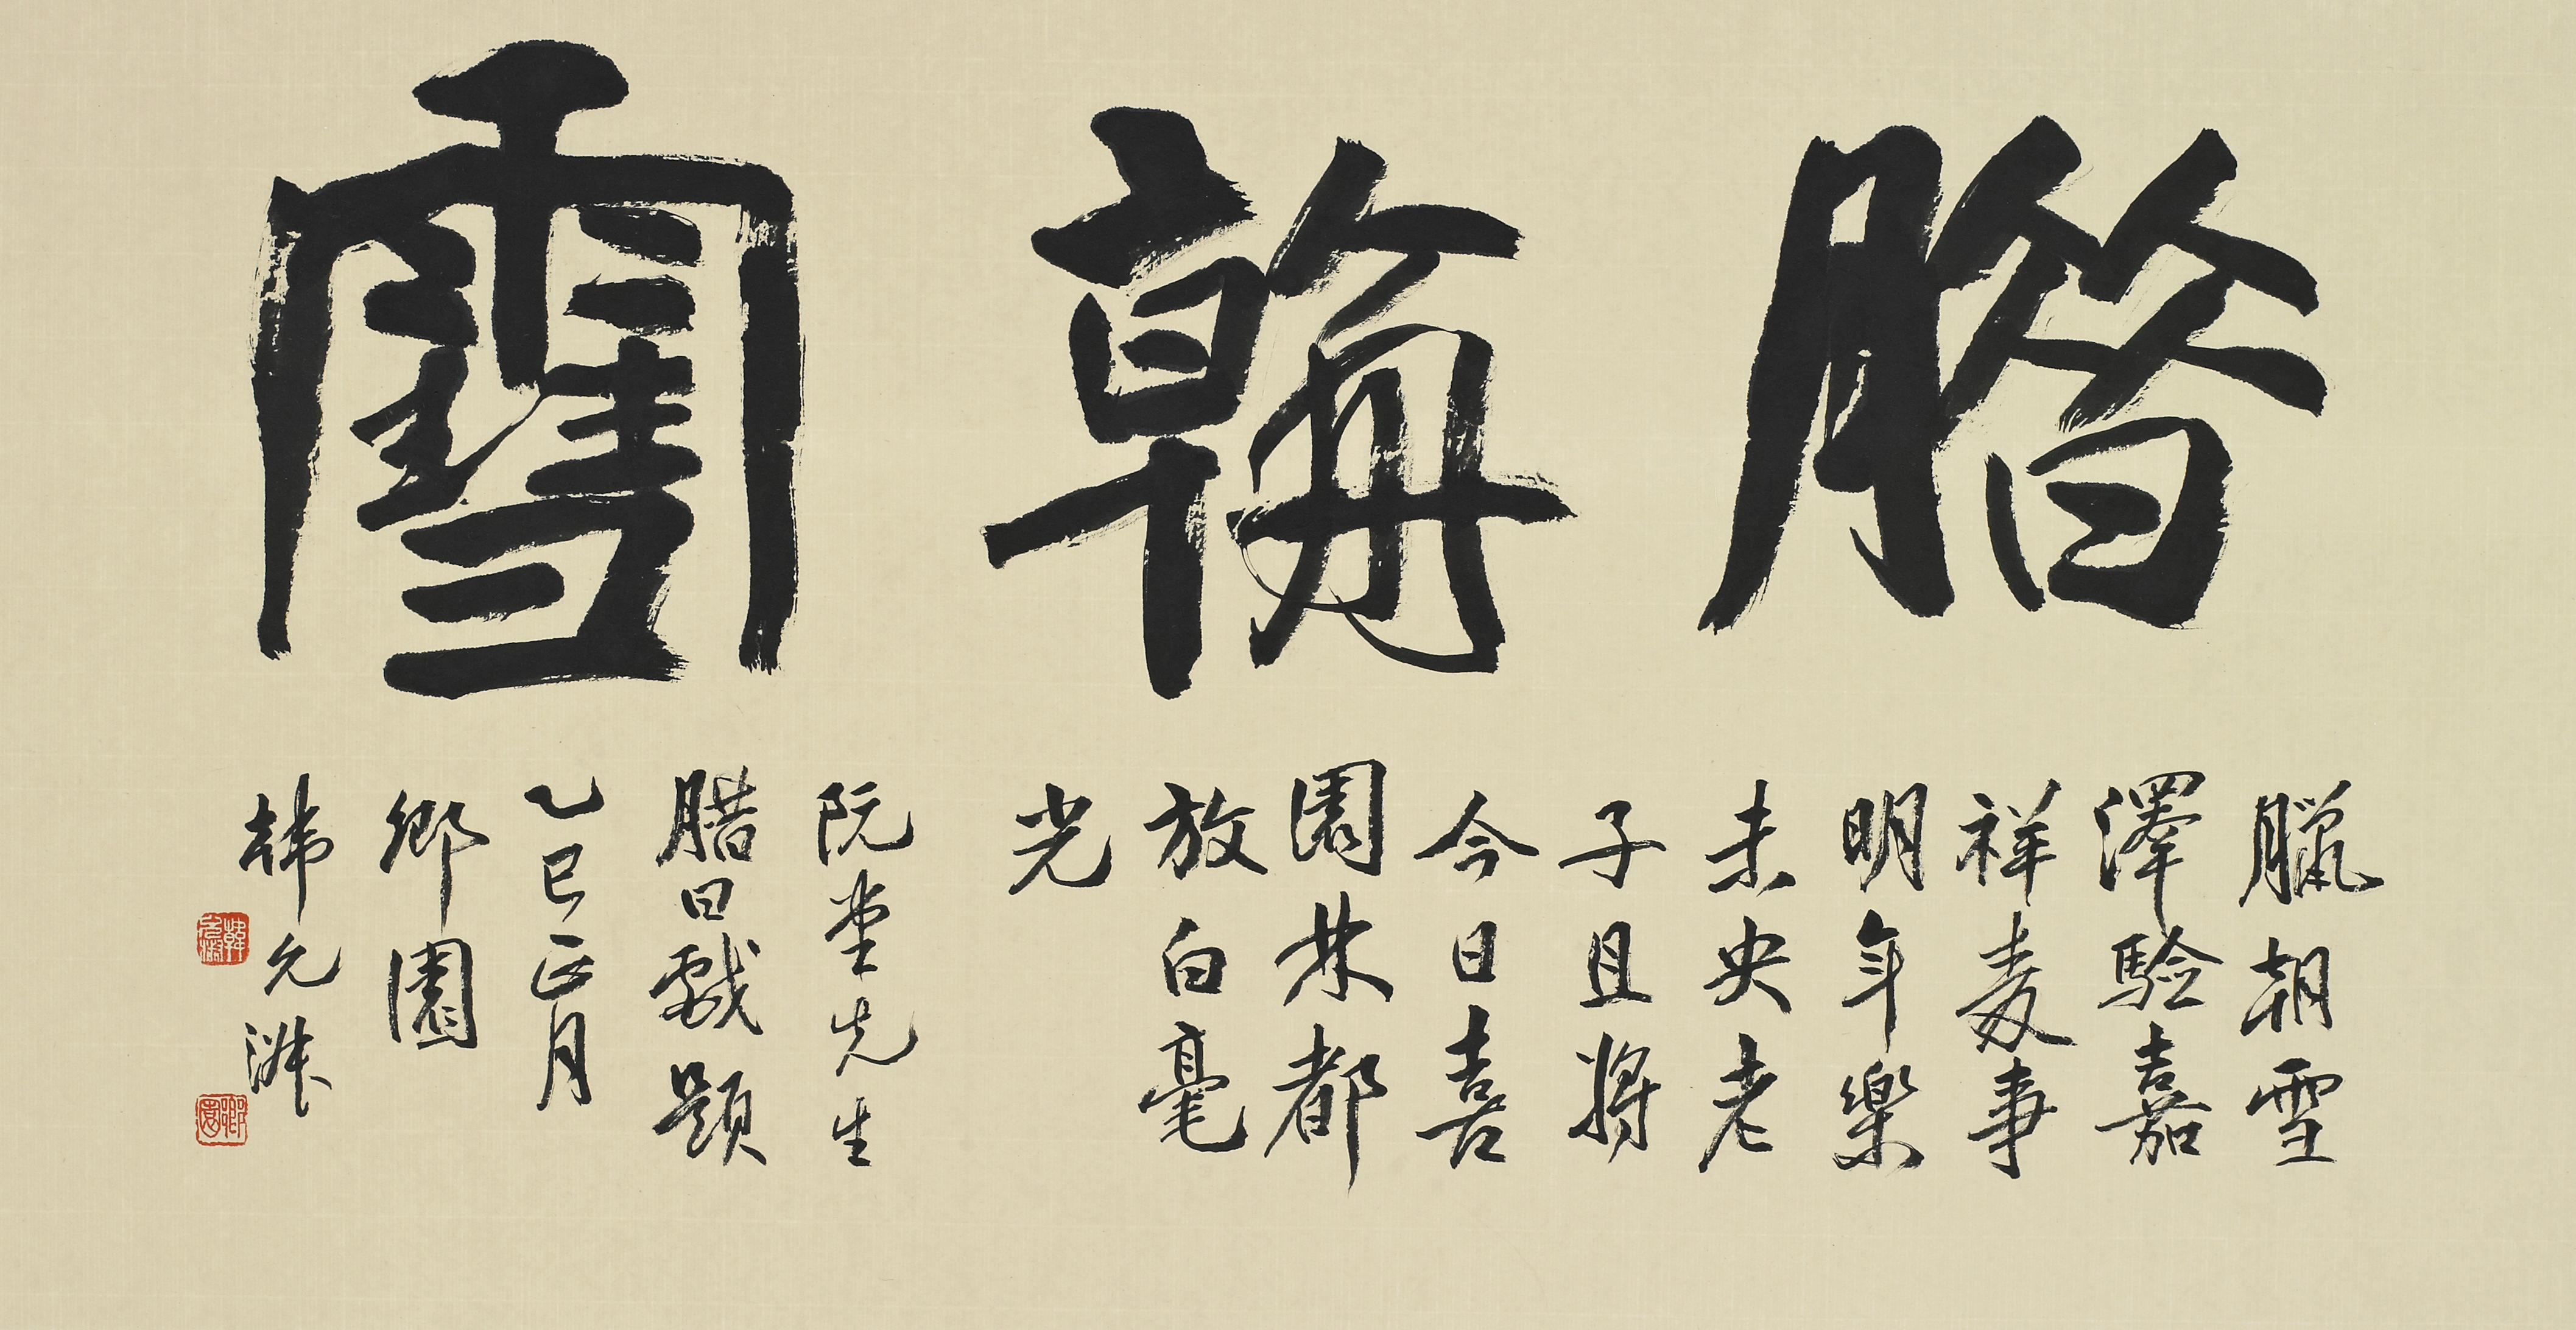 腊朝雪
臘朝雪
澤驗嘉
祥麥事
明年樂
未央老
子且將
今日喜
園林都
放白毫
光
阮堂先生
腊日戲題
乙巳正月
鄉園
韓允淑
韓允淑
鄉園